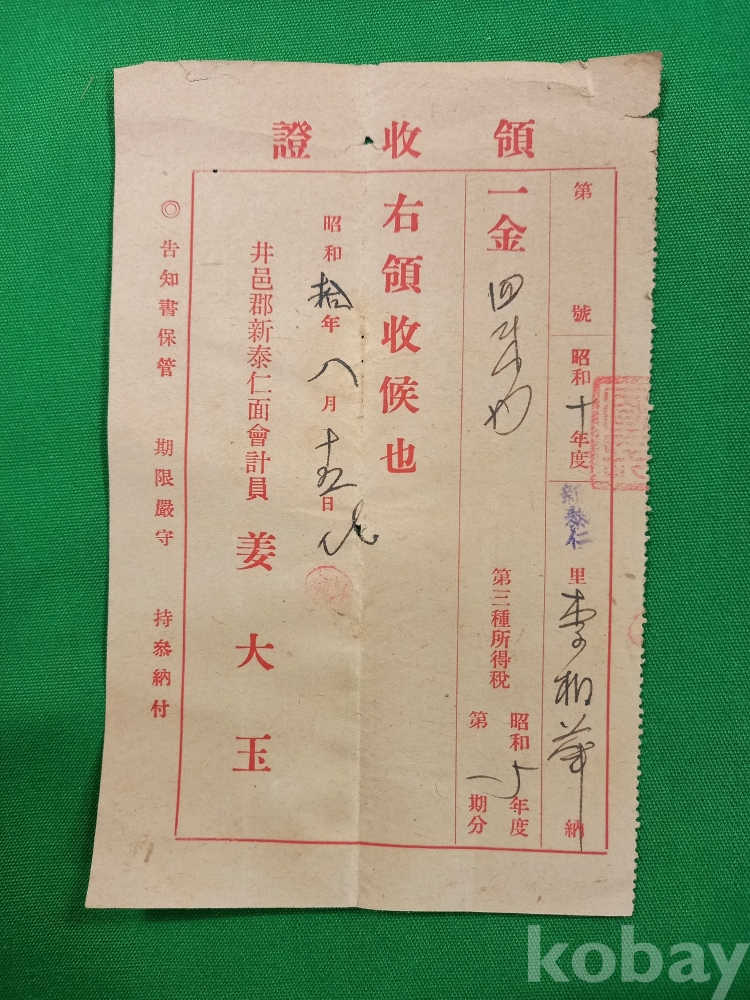 領收證
第 號 昭和十年度 新泰仁里 李 納
一金 四 第三種所得稅 昭和 年度
第一期分
右領收候也
昭和拾年八月十五日
井邑郡新泰仁面會計員 姜大玉
◎告知書保管 期限嚴守 持參納付
kobay